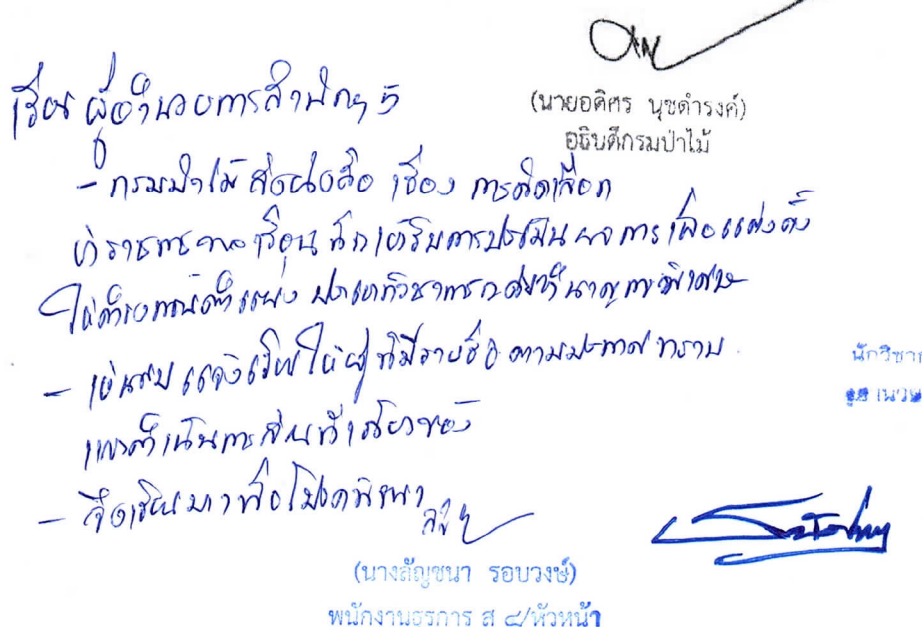 (นายอดิศร นุชดำรงค์)
อธิบดีกรมป่าไม้
เรียน ผู้อำนวยการสำนักฯ 5
- กรมป่าไม้ ส่งหนังสือ เรื่อง การคัดเลือก
ข้าราชการพลเรือน เข้ารับการประเมินผลการ เพื่อแต่งตั้ง
ให้ดำรงตำแหน่ง ประเภทวิชาการ ชำนาญการพิเศษ
- เห็นควร แจ้งเวียนให้ผู้ที่มีรายชื่อตามประกาศ ทราบ
และดำเนินการส่วนที่เกี่ยวข้อง
- จึงเรียนมาเพื่อโปรดพิจารณา
(นางลัญชนา รอบวงษ์)
พนักงานธุรการ ส ๔/หัวหน้า
นักวิชาก